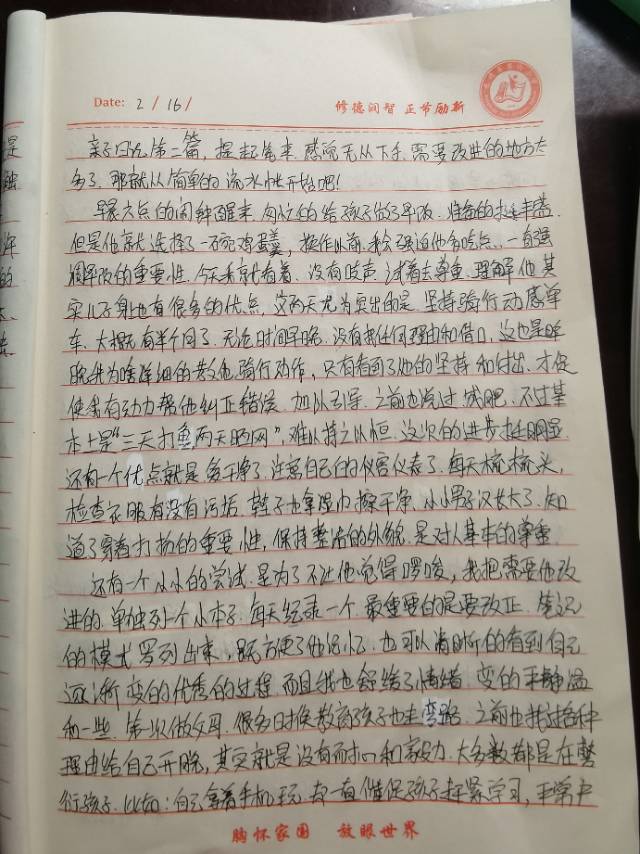 Date: 2 / 16 /
修德润智 正节励新
亲子日记第二篇，提起笔来，感觉无从下手，需要改进的地方太
多了，那就从简单的流水帐开始吧！
早晨六点的闹钟醒来，的给孩子做了早饭，准备的挺丰盛，
但是他就选择了一碗鸡蛋羹，换作以前，我会强迫他多吃点，一直强
调早饭的重要性，今天我就看着，没有吱声，试着去尊重，理解他，其
实儿子身上也有很多的优点，这两天尤为突出的是，坚持骑行动感单
车，大概有半个月了，无论时间早晚，没有找任何理由和借口，这也是昨
晚我为啥详细的教他骑行动作，只有看到了他的坚持和付出，才促
使我有动力帮他纠正错误，加以引导，之前也说过减肥，不过基
本上是“三天打鱼两天晒网”，难以持之以恒，这次的进步挺明显，
还有一个优点就是爱干净了，注意自己的仪容仪表了，每天梳梳头，
检查衣服有没有污垢，鞋子也拿湿巾擦干净，小小男子汉长大了，知
道了穿着打扮的重要性，保持整洁的外貌，是对人基本的尊重，
还有一个小小的尝试，是为了不让他觉得啰唆，我把需要他改
进的，单独列一个小本子，每天纪录一个最重要的是要改正，笔记
的模式罗列出来，既方便了他记忆，也可以清晰的看到自己
逐渐变的优秀的过程，而且我也舒缓了情绪，变的平静温
和一些，第一次做父母，很多时候教育孩子也走弯路，之前也找过各种
理由给自己开脱，其实就是没有耐心和毅力，大多数都是在敷
衍孩子，比如：自己拿着手机玩，却一直催促孩子赶紧学习，平常
胸怀家国 放眼世界